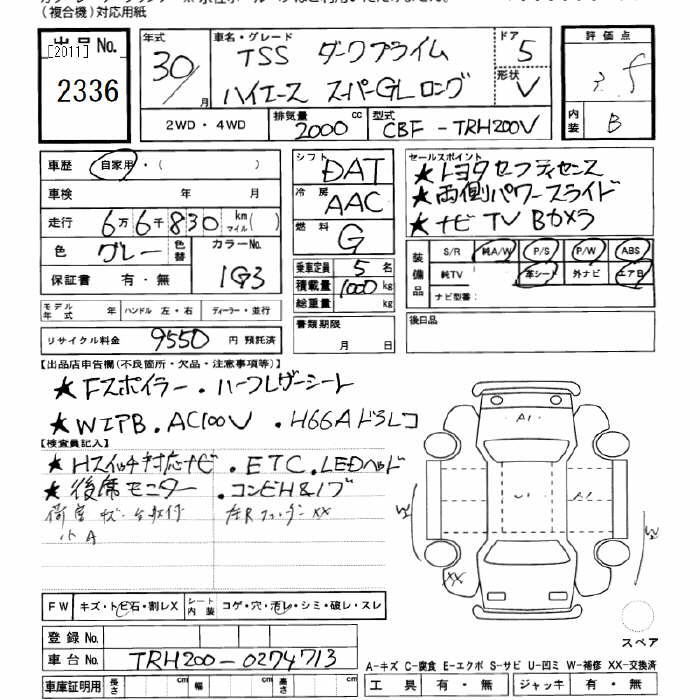 (複合機)対応用紙
出品No.
[2011]
2336
年式
30/
月
車名・グレード
TSS ダークプライム
ハイエース スーパーGLロング
ドア
5
形状
V
評価点
内装
B
2WD・4WD
排気量
2000
cc
型式
CBF-TRH200V
車歴
自家用・( )
車検
年
月
走行
6万6千830
km
マイル( )
色
グレー
色替
カラーNo.
1G3
保証書
有・無
モデル年式
年
ハンドル 左・右
ディーラー・並行
リサイクル料金
9550
円 預託済
シフト
DAT
冷房
AAC
燃料
G
乗車定員
5
名
積載量
1000
kg
総重量
kg
書類期限
月 日
セールスポイント
★トヨタセーフティセンス
★両側パワースライド
★ナビTV Bカメラ
装備品
S/R
純A/W
P/S
P/W
ABS
純TV
革シート
外ナビ
エアB
ナビ型番:
後日品
【出品店申告欄(不良箇所・欠品・注意事項等)】
★Fスポイラー・ハーフレザーシート
★WエアB・AC100V・H66Aドラレコ
【検査員記入】
★Hスイッチ対応ナビ・ETC・LEDヘッド
★後席モニター・コンビH&ノブ
小A
A1
U1
A1
W
W
XX
スペア
FW
キズ・トビ石・割レX
シート内装
コゲ・穴・汚レ・シミ・破レ・スレ
登録No.
車台No.
TRH200-0274713
車庫証明用
長さ
cm
幅
cm
高さ
cm
A-キズ C-腐食 E-エクボ S-サビ U-凹ミ W-補修 XX-交換済
工具
有・無
ジャッキ
有・無